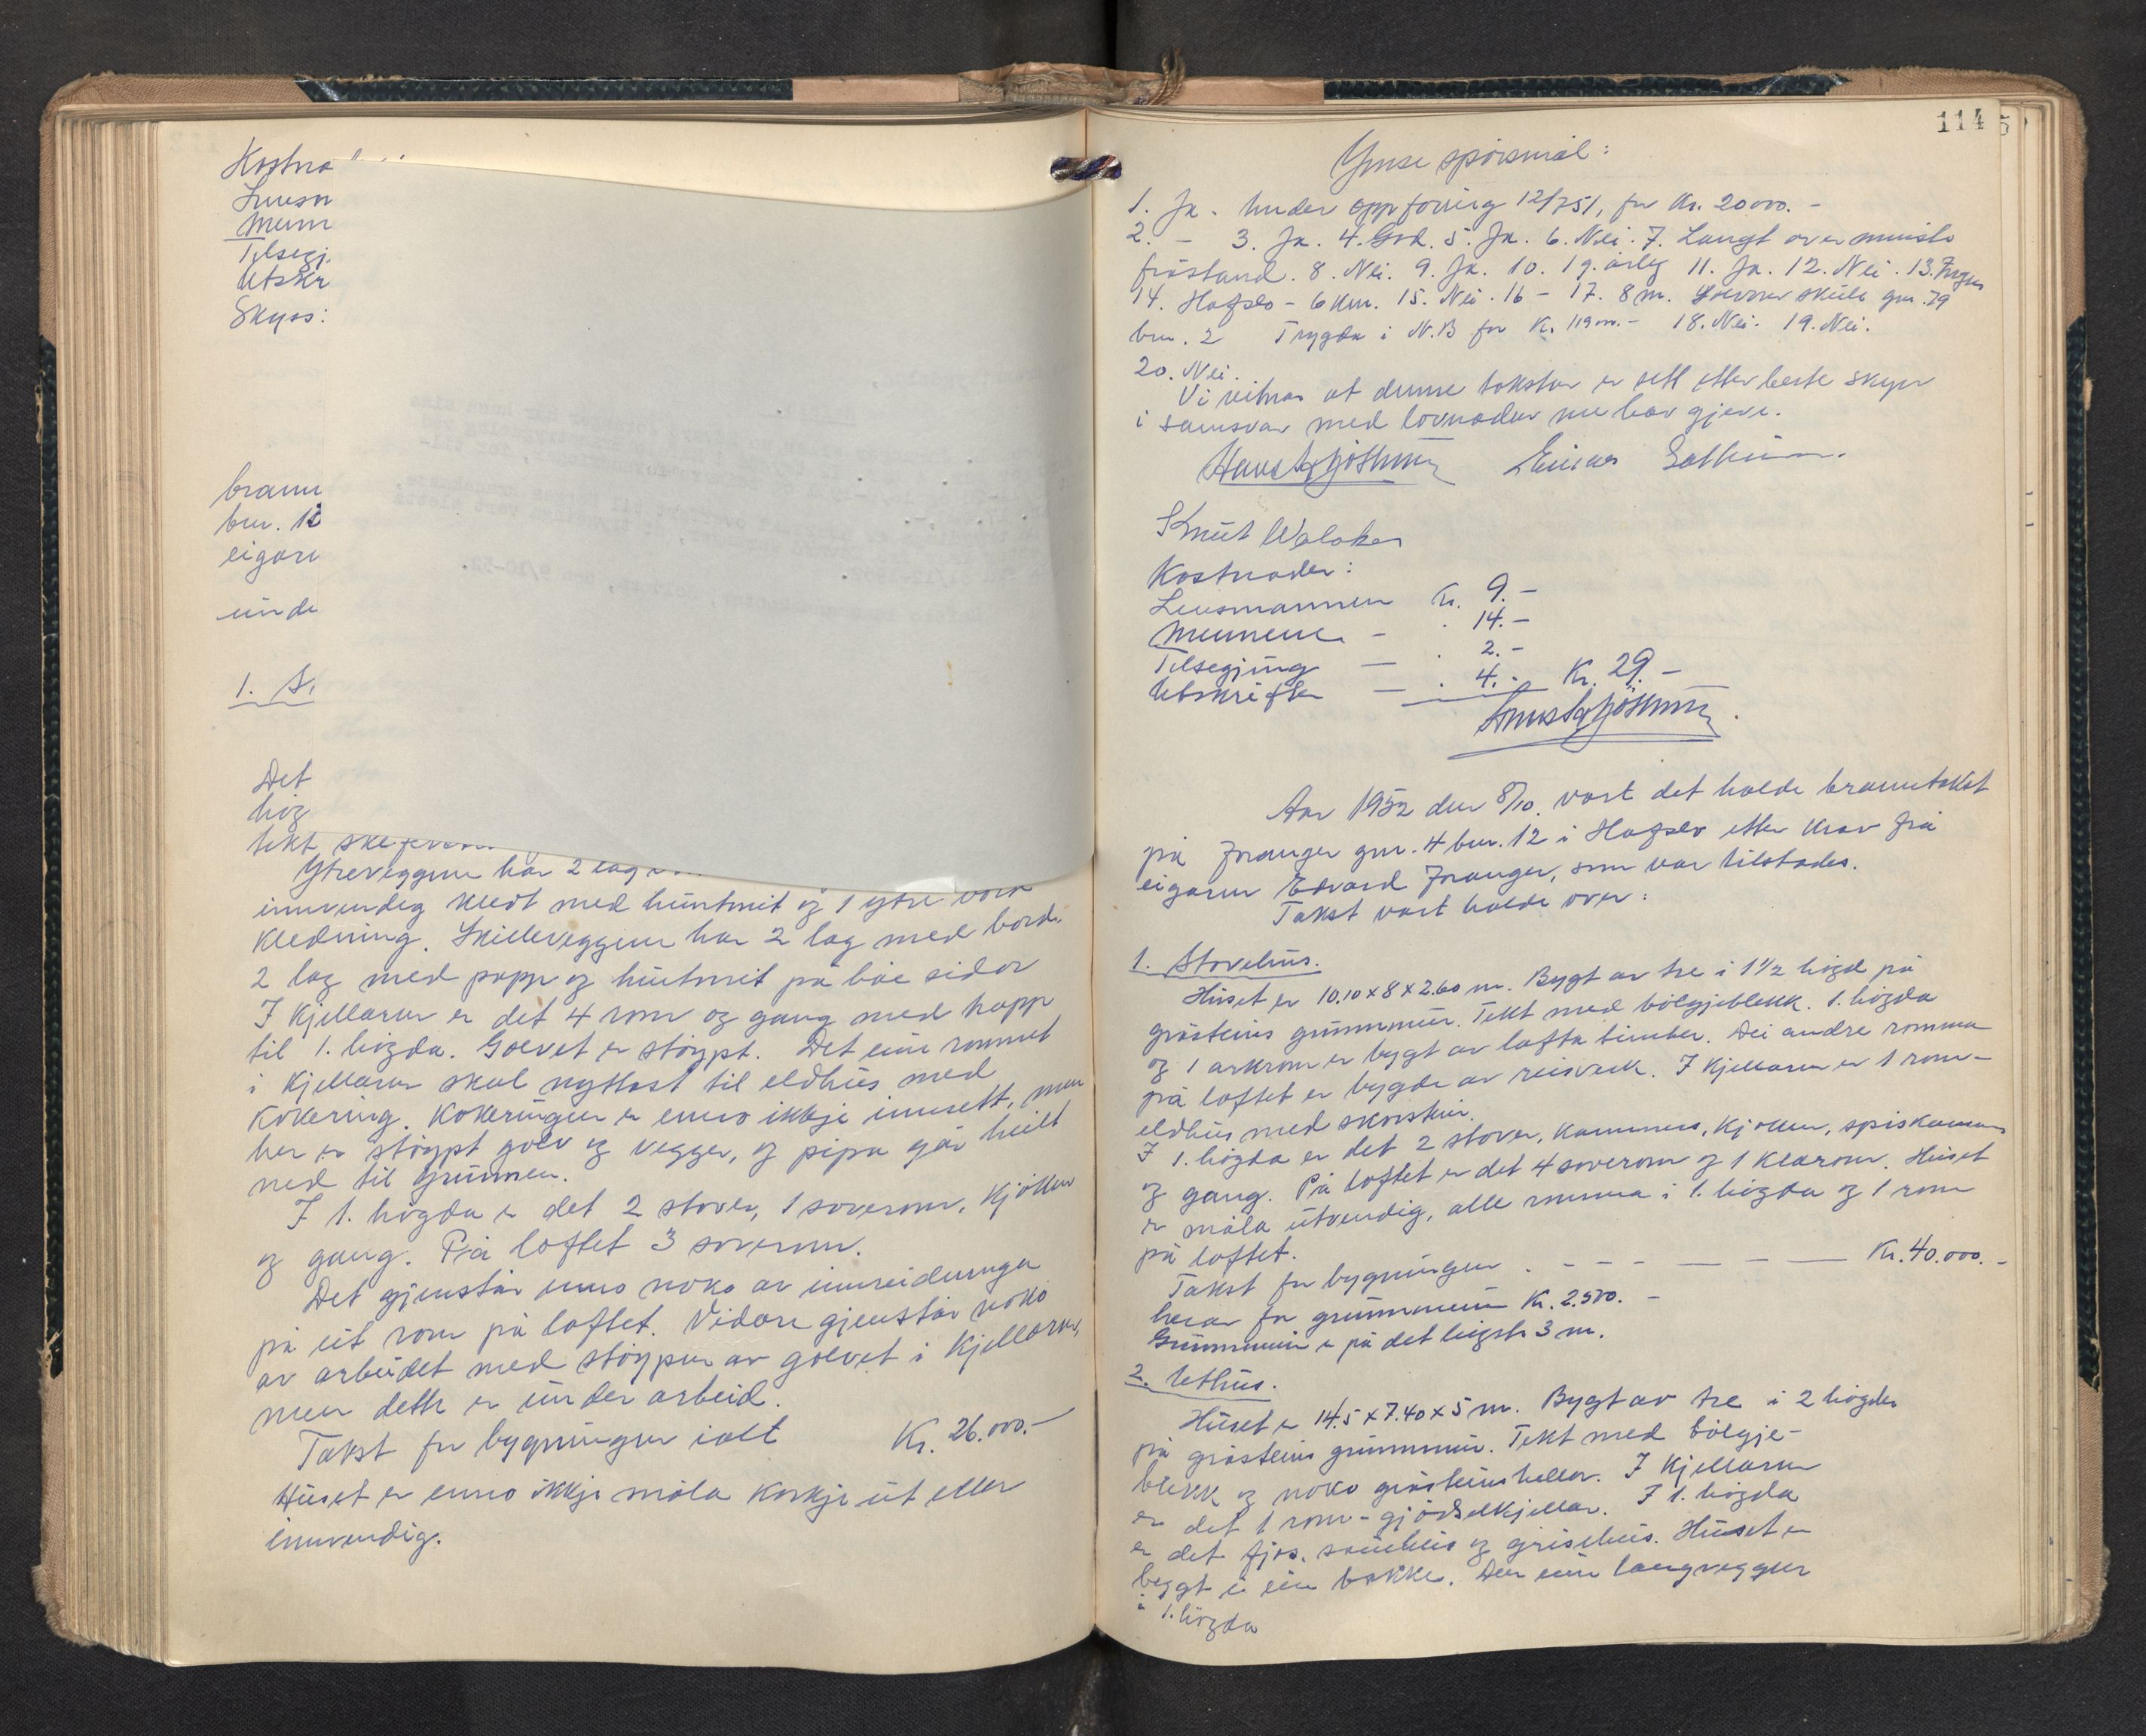 Kostna
Lensm
Menn
Tilsegj.
Utskr
Skyss:
brann
bnr. 12
eigare
unde
1. St
Det
hög
tekt skifer
Ytreveggene har 2 lag
innvendig kledt med huntonit og 1 ytre bord
kledning. Skilleveggene har 2 lag med bord,
2 lag med papp og huntonit på båe sidor
I kjellaren er det 4 rom og gang med trapp
til 1. högda. Golvet er stöypt. Det eine rommet
i kjellaren skal nyttast til eldhus med
kokering. Kokeringen er enno ikkje innsett, men
her er stöypt golv og vegger, og pipa går heilt
ned til grunnen.
I 1. högda er det 2 stover, 1 soverom, kjöken
og gang. På loftet 3 soverom.
Det gjenstår enno noko av innreidninga
på eit rom på loftet. Vidare gjenstår noko
av arbeidet med stöypen av golvet i kjellaren,
men dette er under arbeid.
Takst for bygningen ialt Kr. 26.000.-
Huset er enno ikkje måla korkje ut eller
innvendig.
114
5
Ymse spörsmål:
1. Ja. Under oppföring 12/7 51, for Kr. 20000.-
2. - 3. Ja. 4. God. 5. Ja. 6. Nei. 7. Langt over minste
fråstand. 8. Nei. 9. Ja. 10. 1 g. årleg 11. Ja. 12. Nei. 13. Ingen
14. Hafslo - 6 km. 15. Nei. 16 - 17. 8 m. skule gnr. 79
bnr. 2 Trygda i N.B for Kr. 18. Nei. 19. Nei.
20. Nei.
Vi vitnar at denne taksten er sett etter beste skyn
i samsvar med lovnader me hav gjeve.
Einar
Knut Walaker
Kostnader:
Lensmannen Kr. 9.-
Mennene - . 14.-
Tilsegjing - . 2.-
Utskrifter - . 4.- Kr. 29.-
Aar 1952 den 8/10 vart det halde branntakst
på Joranger gnr. 4 bnr. 12 i Hafslo etter krav frå
eigaren Edvard Joranger, som var tilstades.
Takst vart halde over:
1. Stovehus.
Huset er 10.10 x 8 x 2.60 m. Bygt av tre i 1 1/2 högd på
gråsteins grunnmur. Tekt med bölgjeblekk. 1. högda
og 1 arkrom er bygt av lafta timber. Dei andre romma
på loftet er bygde av reisverk. I kjellaren er 1 rom -
eldhus med skorstein.
I 1. högda er det 2 stover, kammers, kjöken, spiskammers
og gang. På loftet er det 4 soverom og 1 klærom. Huset
er måla utvendig, alle romma i 1. högda og 1 rom
på loftet.
Takst for bygningen . - - - — - — Kr. 40.000.-
herav for grunnmuren Kr. 2.500.-
Grunnmuren er på det högste 3 m.
2. Uthus.
Huset er 14.5 x 7.40 x 5 m. Bygt av tre i 2 högder
på gråsteins grunnmur. Tekt med bölgje-
blekk og noko gråsteinsheller. I kjellaren
er det 1 rom - gjödselkjellar. I 1. högda
er det fjos, sauehus og grisehus. Huset er
bygt i ein bakke. Den eine langveggen
i 1. högda